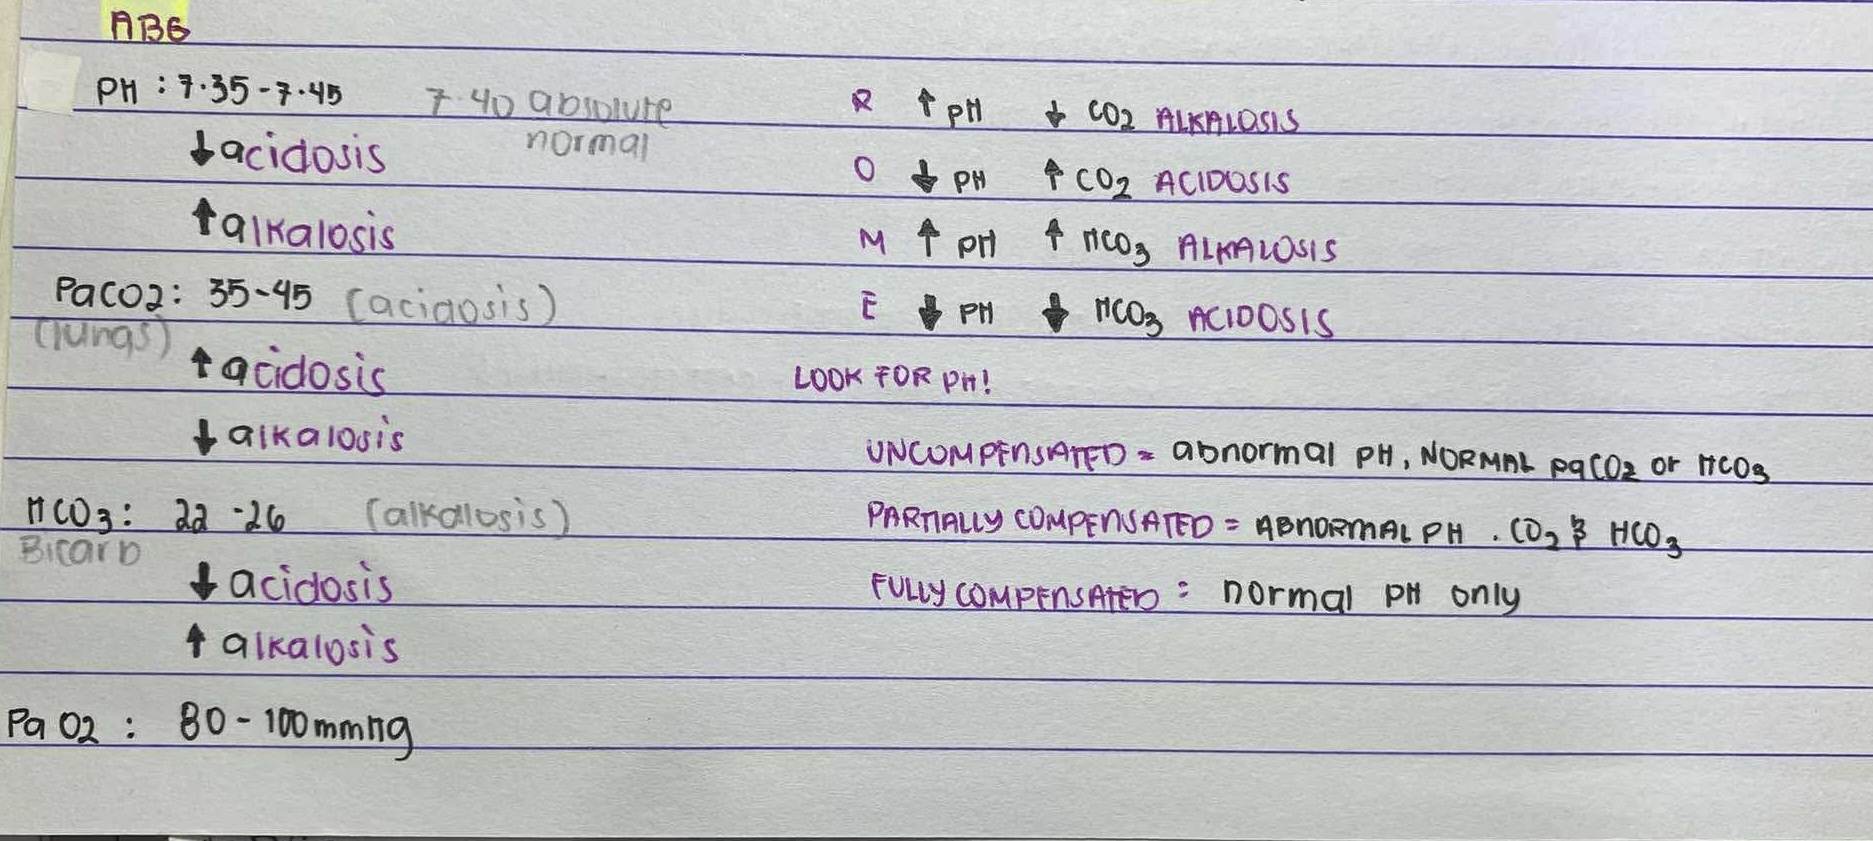 ABG
PH : 7.35-7.45 7.40 absolute
normal
↓ acidosis
↑ alkalosis
PaCO2: 35-45 (acidosis)
(lungs)
↑ acidosis
↓ alkalosis
HCO3: 22-26 (alkalosis)
Bicarb
↓ acidosis
↑ alkalosis
PaO2 : 80-100mmHg
R ↑ PH ↓ CO2 ALKALOSIS
O ↓ PH ↑ CO2 ACIDOSIS
M ↑ PH ↑ HCO3 ALKALOSIS
E ↓ PH ↓ HCO3 ACIDOSIS
LOOK FOR PH!
UNCOMPENSATED = abnormal PH, NORMAL PaCO2 or HCO3
PARTIALLY COMPENSATED = ABNORMAL PH . CO2 & HCO3
FULLY COMPENSATED = normal PH only